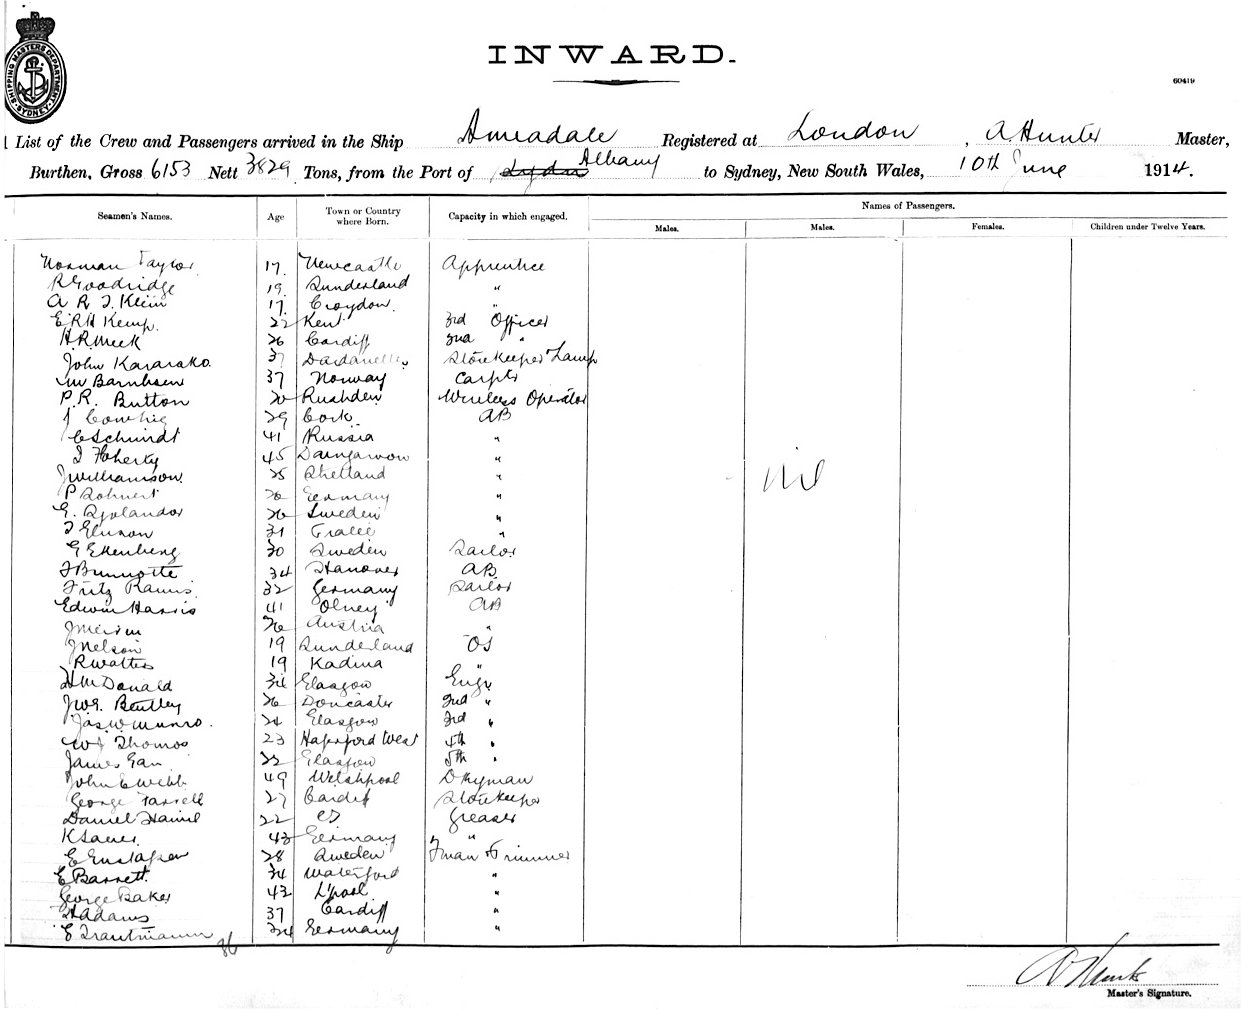 SHIPPING MASTERS DEPARTMENT SYDNEY
INWARD.
60419
List of the Crew and Passengers arrived in the Ship Armadale Registered at London, A Hunter Master,
Burthen, Gross 6153 Nett 3829 Tons, from the Port of Albany to Sydney, New South Wales, 10th June 1914.
Seamen's Names. Age Town or Country where Born. Capacity in which engaged. Names of Passengers.
Males. Males. Females. Children under Twelve Years.
Norman Taylor 17 Newcastle Apprentice
R Goodridge 19 Sunderland "
A R J Klein 17 Croydon "
E R H Kemp 22 Kent 3rd Officer
H. R. Meek 26 Cardiff 2nd "
John Kararako 37 Dardanelles Storekeeper Lamp
Barnhsen 37 Norway Carptr
P. R. Button 20 Rushden Wireless Operator
J Cowhig 29 Cork AB
C Schmidt 41 Russia "
J Flaherty 45 Dungarvon "
J Williamson 25 Shetland "
P 26 Germany "
E. Sjolander 26 Sweden "
31 Tralee "
G Ekenberg 30 Sweden Sailor
34 Hanover AB
Fritz 32 Germany Sailor
Edwin Harris 41 Olney AB
26 Austria "
J Nelson 19 Sunderland OS
R Walter 19 Kadina "
H McDonald 34 Glasgow Engr
J. W. G. Bentley 26 Doncaster 2nd "
Jas. W. Munro 24 Glasgow 3rd "
W J Thomas 23 Haverford West 4th "
James 22 Glasgow 5th "
John E Webb 49 Welshpool Dkyman
George Farrell 27 Cardiff Storekeeper
Daniel 22 Do Greaser
K Sauer 43 Germany "
E Gustafsen 28 Sweden Fman & Trimmer
E Barrett 34 Waterford "
George Baker 43 L'pool "
H Adams 37 Cardiff "
E Trautmann 34 Germany "
Nil
36
A Hunter
Master's Signature.